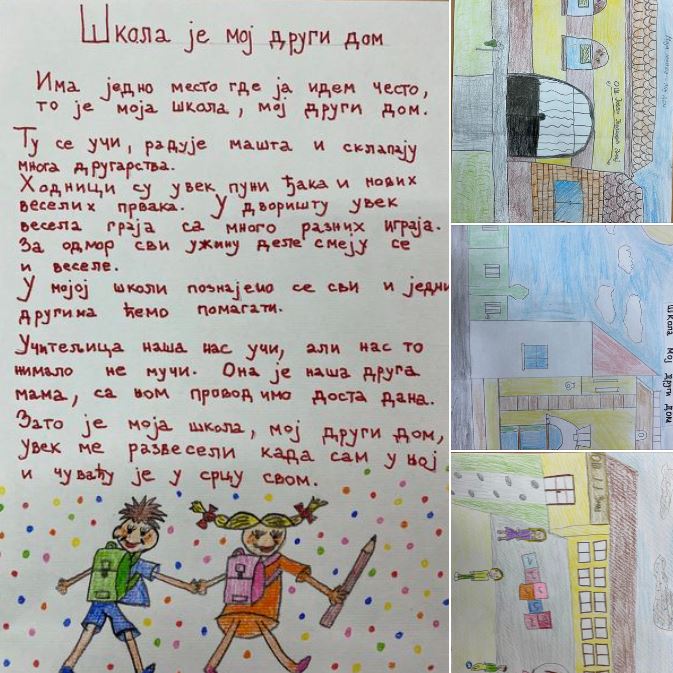 Школа је мој други дом
Има једно место где ја идем често,
то је моја школа, мој други дом.
Ту се учи, радује машта и склапају
многа другарства.
Ходници су увек пуни ђака и нових
веселих првака. У дворишту увек
весела граја са много разних играја.
За одмор сви ужину деле смеју се
и веселе.
У мојој школи познајемо се сви и једни
другима ћемо помагати.
Учитељица наша нас учи, али нас то
нимало не мучи. Она је наша друга
мама, са њом проводимо доста дана.
Зато је моја школа, мој други дом,
увек ме развесели када сам у њој
и чуваћу је у срцу свом.
ОШ Јован Јовановић Змај
Школа мој други дом
ОШ Ј.Ј. Змај